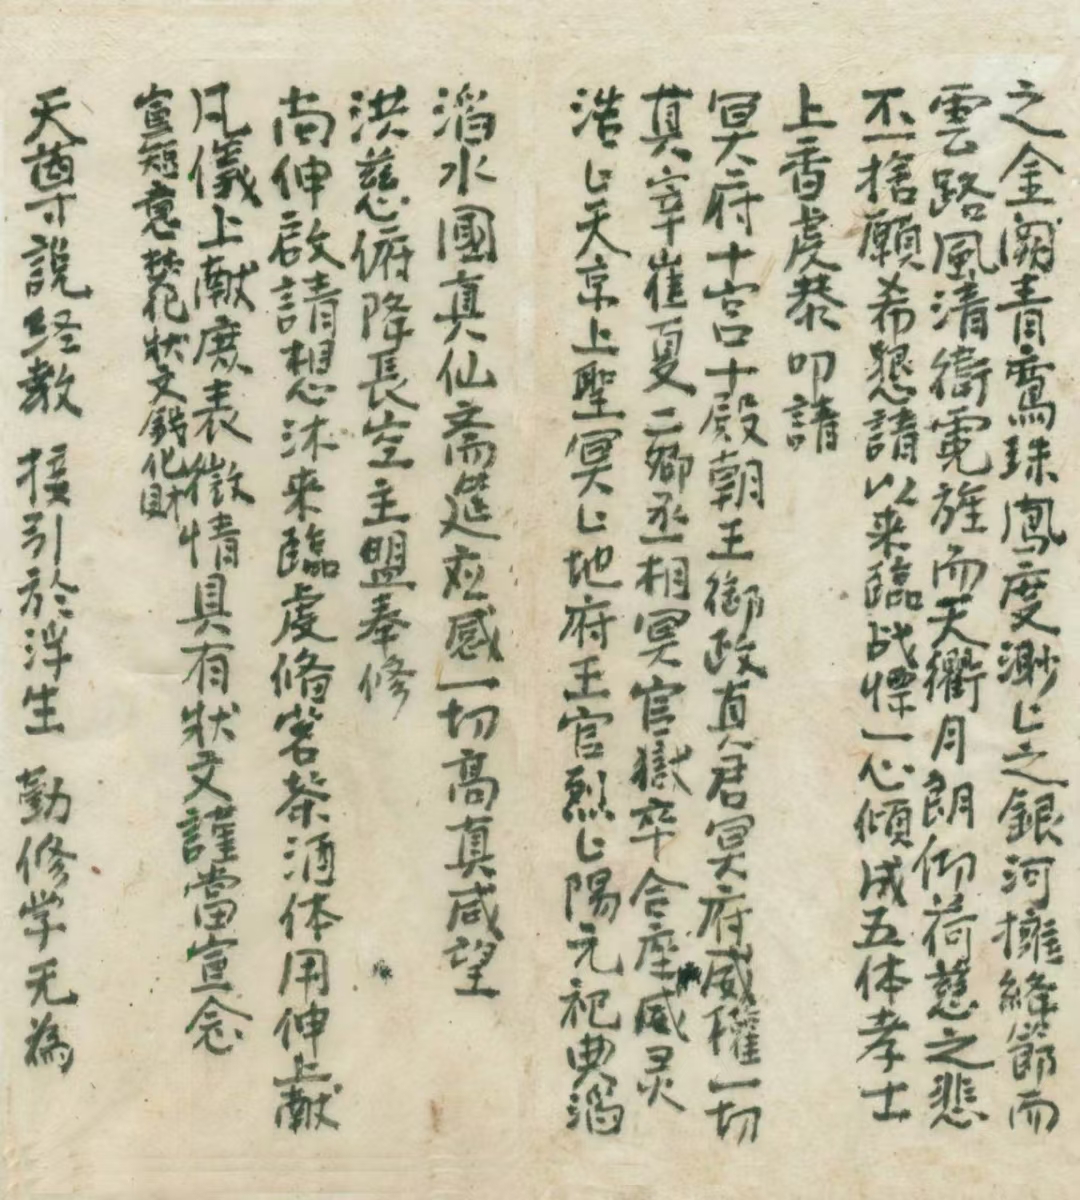 之金闕青鸞珠鳳度渺〻之銀河擁絳節而
雲路風清衛霓旌而天衢月朗仰荷慈之悲
不捨願希懇請以来臨战慄一心傾成五体孝士
上香虔恭叩請
冥府十宫十殿朝王御政真君冥府威權一切
真宰崔夏二卿丞相冥官獄卒合座威灵
浩〻天京上聖冥〻地府王官烈〻陽元祀典滔
滔水國真仙斋筵应感一切高真咸望
洪慈俯降長空主盟奉修
尚伸啟請想沐来臨虔俻茗茶酒体用伸上献
凡儀上献庶表微情具有状文謹當宣念
宣短意 状文錢化財
天尊説经教 接引於浮生 勤修学无為